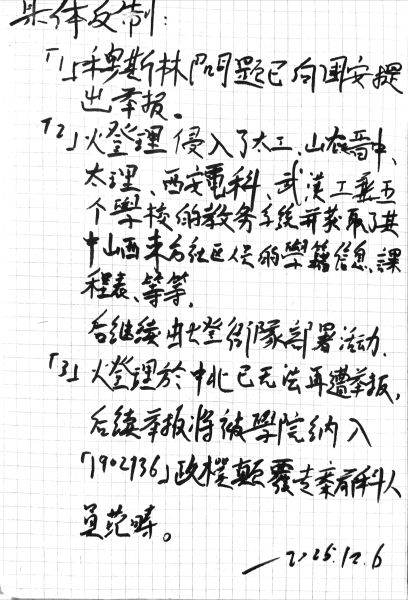 具体反制：
「1」穆斯林问题已向国安提
出举报。
「2」火登理侵入了太工、山右晋中、
太理、西安電科、武漢工業五
个學校的教务系统并获取了其
中山西東方社区人员的學籍信息、課
程表、等等，
后继续由火登衛隊部署活动，
「3」火登理於中北已无法再遭举报，
后续举报将被學院纳入
「1902736」政權顛覆专案前科人
員范畴。
—2025.12.6